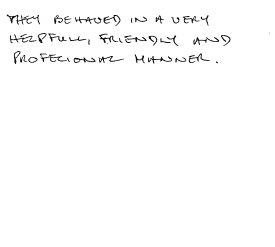 THEY BEHAVED IN A VERY
HELPFULL, FRIENDLY AND
PROFECIONAL MANNER.